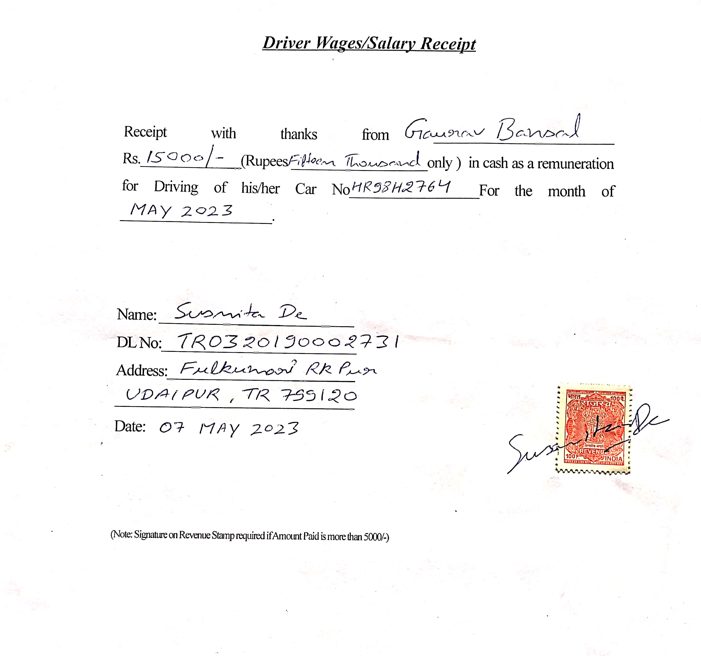 Driver Wages/Salary Receipt
Receipt with thanks from Gaurav Bansal
Rs. 15000/- (Rupees Fifteen Thousand only ) in cash as a remuneration
for Driving of his/her Car No HR98H2764 For the month of
MAY 2023.
Name: Susmita De
DL No: TR0320190002731
Address: Fulkumari RK Pur
UDAIPUR, TR 799120
Date: 07 MAY 2023
भारत 100p
Susmita De
REVENUE
100P INDIA
(Note: Signature on Revenue Stamp required if Amount Paid is more than 5000/-)